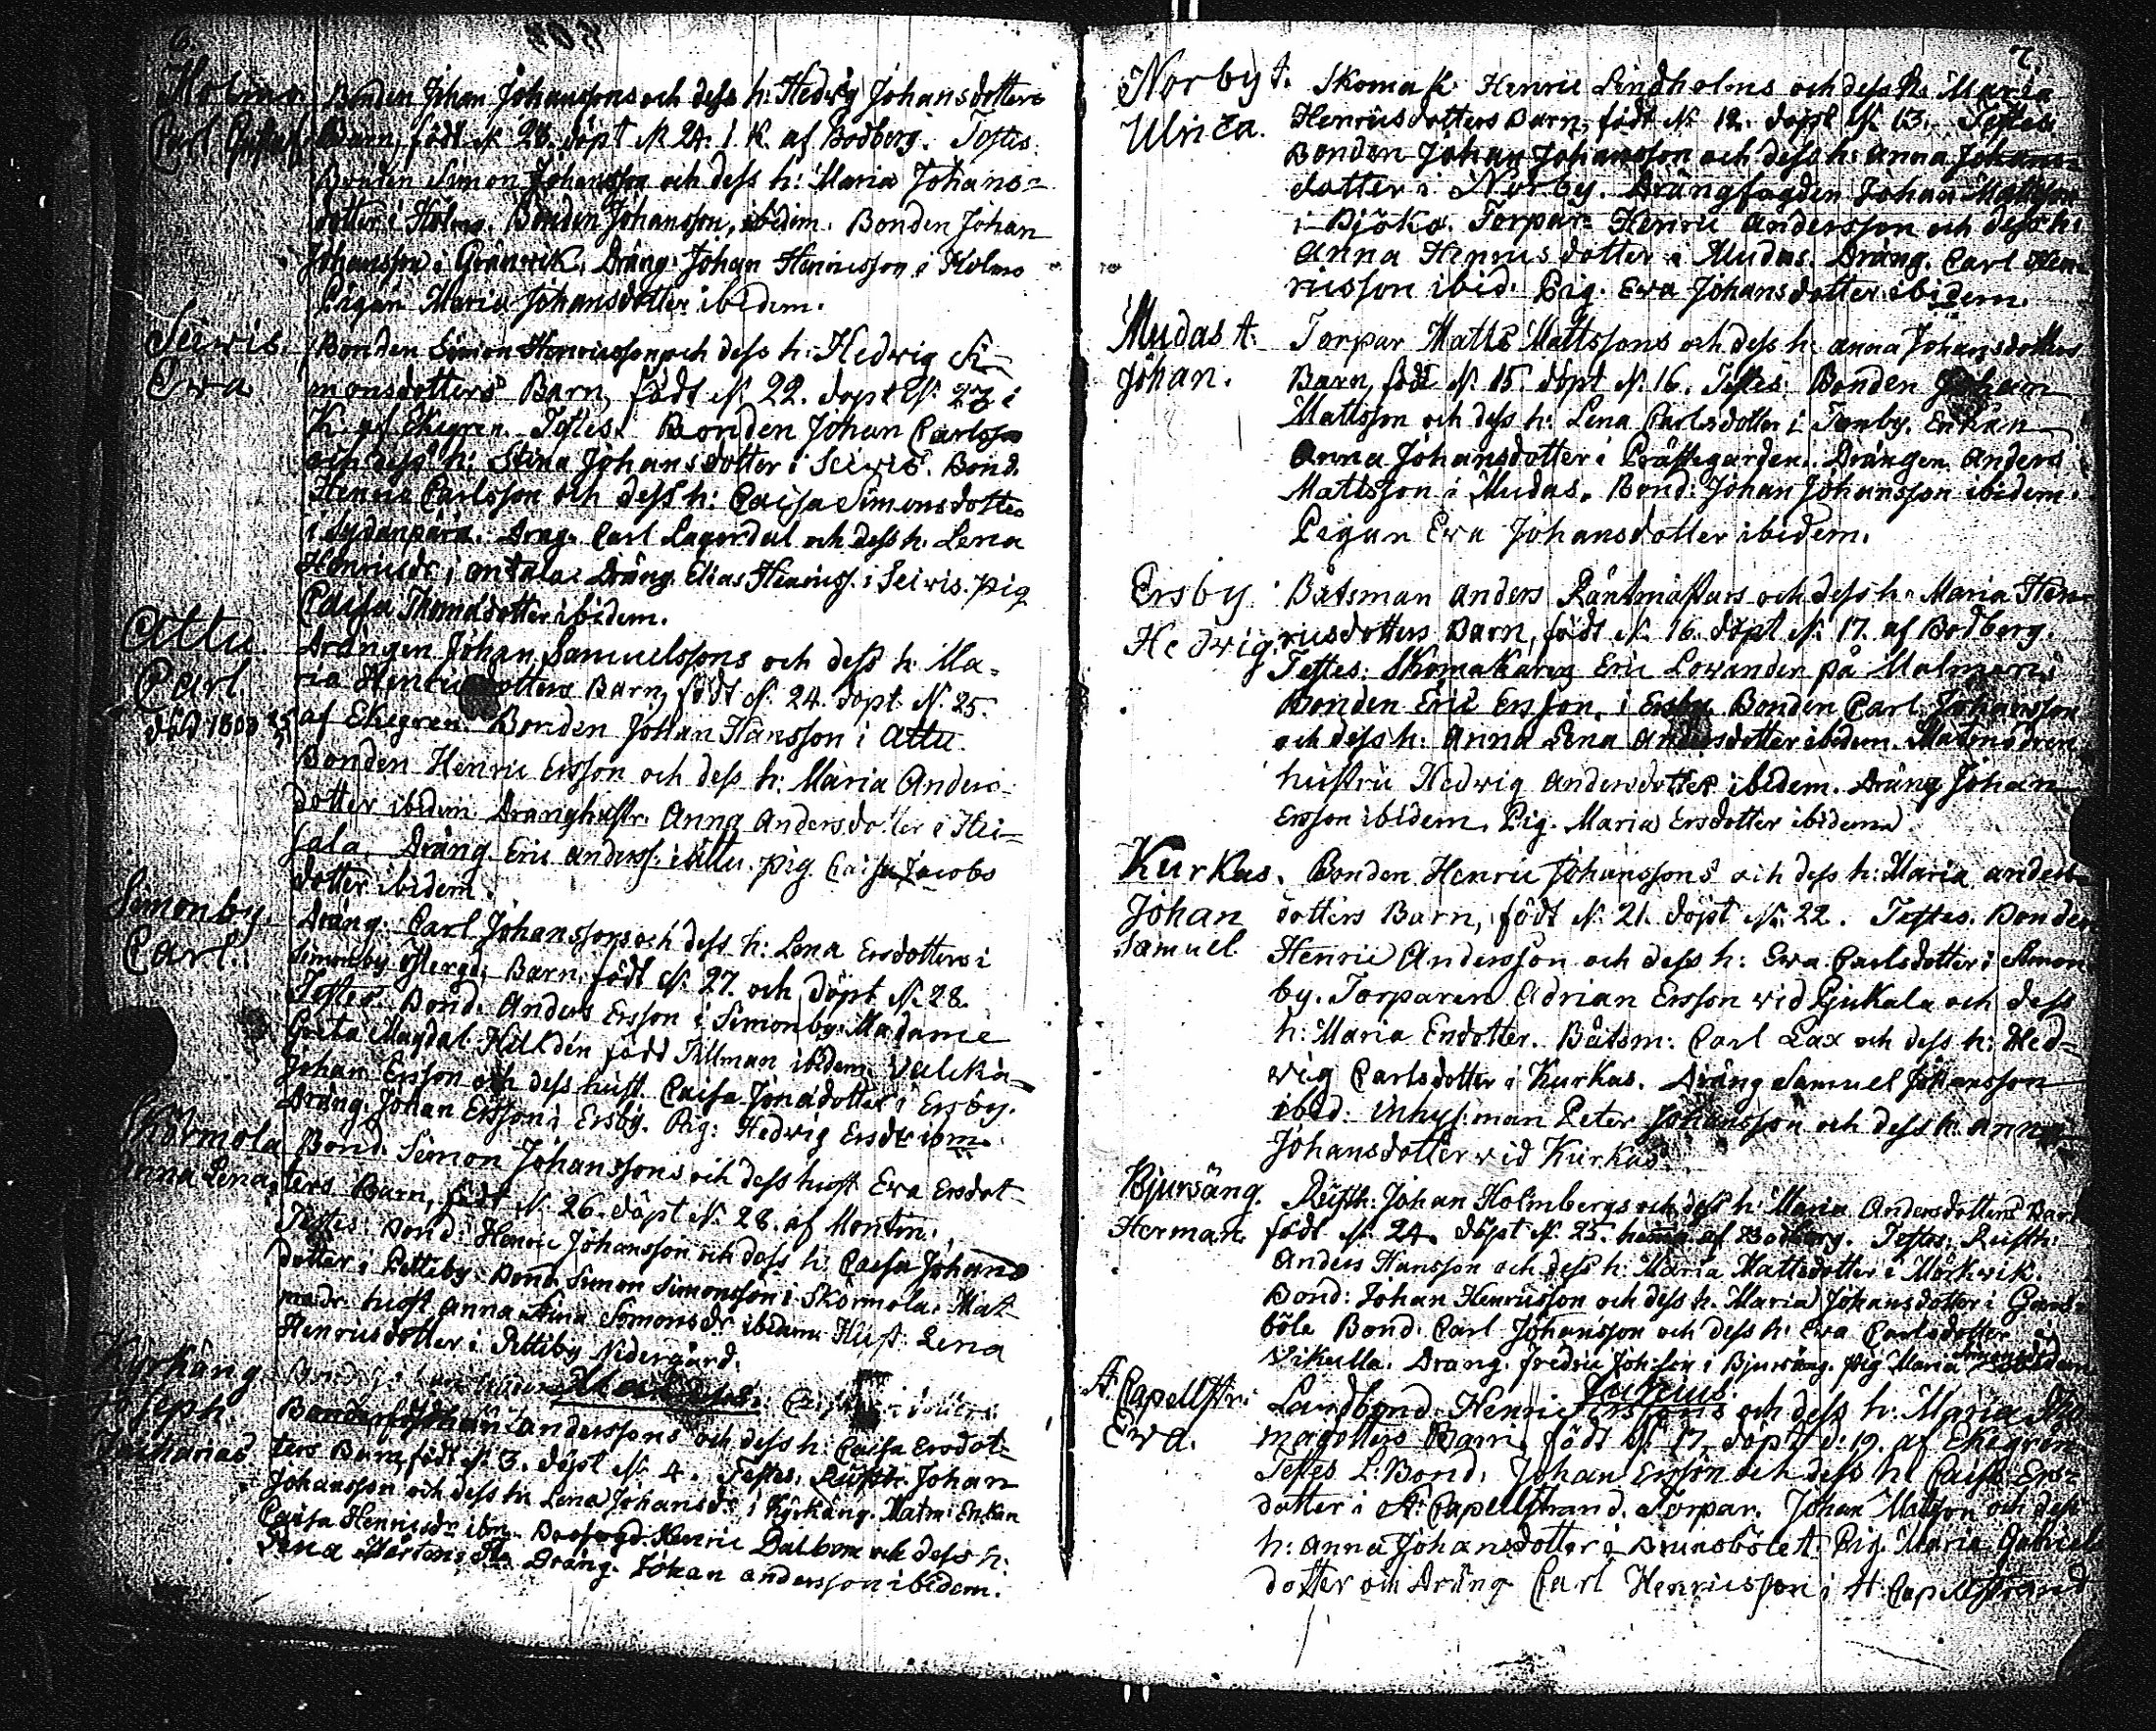 6.
Holmo. Bonden Johan Johanssons och dess h: Hedvig Johansdotters
Carl Gustaf. Barn, född N. 23. döpt N. 24. i K. af Bodberg. Testes.
Bonden Simon Johansson och dess h: Maria Johans=
dotter i Holmo. Bonden Johansson, ibidem. Bonden Johan
Johansson i Granvik. Dräng: Johan Henricsson i Holmo
Pigan Maria Johansdotter ibidem.
Seivis. Bonden Simon Henricssons och dess h: Hedvig Si=
Eva monsdotters Barn, född N. 22. döpt N. 23 i
K. af Ekegren. Testes. Bonden Johan Carlsson
och dess h: Stina Johansdotter i Seivis. Bond.
Henric Carlsson och dess h: Caisa Simonsdotter
i Sydänpärä. Dräng. Carl Lagerdal och dess h. Lena
Henricsdr, i Antala. Dräng. Elias Henricss. i Seivis. pig
Caisa Thomasdotter ibidem.
Attu. Drängen Johan Samuelssons och dess h: Ma=
Carl. ria Henricsdotters Barn, född N. 24. döpt N. 25.
död 1803 af Ekegren. Bonden Johan Hansson i Attu.
Bonden Henric Ersson och dess h: Maria Anders-
dotter ibidem. Dränghustr. Anna Andersdotter i Hei=
sala. Dräng. Eric Anderss. i Attu. pig. Caisa Jacobs
dotter ibidem.
Simonby. Dräng: Carl Johanssons och dess h: Lena Ersdotters i
Carl. Simonby Östergd: Barn, född N. 27. och döpt N. 28.
Testes. Bond. Anders Ersson i Simonby. Madame
Greta Magdal. Hilldén född Tillman ibidem.
Johan Ersson och dess hust. Caisa Jonadotter i Ersby.
Dräng. Johan Ersson i Ersby. Pig: Hedvig Ersdr ibm.
Skärmola Bond. Simon Johanssons och dess hust Eva Ersdot=
Anna Lena. ters Barn, född N. 26. döpt N. 28. af Montin.
Testes. Bond: Henric Johansson och dess h: Caisa Johans
dotter i Pettiby. Bond. Simon Simonsson i Skärmola. Mat=
modr. hust Anna Stina Simonsdr ibidem. Hust: Lena
Henricsdotter i Pettiby Nedergård.
Kyrkäng
Joseph Bonden Johan Anderssons och dess h: Caisa Ersdot=
Zacharias. ters Barn, född N. 3. döpt N. 4. Testes. Rusth. Johan
Johansson och dess h: Lena Johansdr. i Kyrkäng. Matm: Enkan
Caisa Henricsdr ibm. Henric Dalbom och dess h:
Lena Dräng. Johan Andersson ibidem.
7.
Norby t. Skomak. Henric Lindholms och dess h: Maria
Ulrica. Henricsdotters Barn, född N. 12. döpt N. 13. Testes.
Bonden Johan Johansson och dess h: Anna Johans=
dotter i Norby. Drängfogden Johan Mattsson
i Björkö. Torpar. Henric Andersson och dess h:
Anna Henricsdotter i Mudas. Dräng. Carl Hen=
ricsson ibid. Pig. Eva Johansdotter ibidem.
Mudas t. Torpar Matts Mattssons och dess h: Anna Johansdotters
Johan. Barn, född N. 15. döpt N. 16. Testes. Bonden Johan
Mattsson och dess h: Lena Carlsdotter i Tomby. Enkan
Anna Johansdotter i Prästegården. Drängen Anders
Mattsson i Mudas. Bond: Johan Johansson ibidem.
Pigan Eva Johansdotter ibidem.
Ersby Båtsman Anders Räntmästars och dess h: Maria Hen=
Hedvig. ricsdotters Barn, född N. 16. döpt N. 17. af Bodberg.
Testes: Skomakaren Eric Lovander på Malmen.
Bonden Eric Ersson, i Ersby. Bonden Carl Johansson
och dess h: Anna Lena Andersdotter ibidem. Matmodren
hustru Hedvig Andersdotter ibidem. Dräng Johan
Ersson ibidem. Pig. Maria Ersdotter ibidem
Kurkas. Bonden Henric Johanssons och dess h: Maria Anders=
Johan dotters Barn, född N. 21. döpt N. 22. Testes. Bonden
Samuel Henric Andersson och dess h: Eva Carlsdotter i Simon
by. Torparen Adrian Ersson vid Pjukala och dess
h: Maria Ersdotter. Båtsm: Carl Lax och dess h: Hed=
vig Carlsdotter i Kurkas. Dräng Samuel Johansson
ibid: Inhys:man Peter Johansson och dess h: Anna
Johansdotter vid Kurkas.
Bjursäng. Rusth: Johan Holmbergs och dess h: Maria Andersdotters Barn
Herman. född N. 24. döpt N. 25. hema af Bodberg. Testes: Rusth:
Anders Hansson och dess h: Maria Mattsdotter i Mörkvik.
Bond: Johan Henricsson och dess h. Maria Johansdotter i
böle Bond. Carl Johansson och dess h: Eva Carlsdotter i
Vikulla. Dräng. Fredric Joh:son i Bjursäng. pig Maria Simonsd. ibidem
Junius.
t. Capellstr: Landbond. Henric Erssons och dess h: Maria Tho
Eva. masdotters Barn, född N. 17. döpt d. 19. af Ekegren
Testes L: Bond. Johan Ersson och dess h: Caisa Ers=
dotter i t. Capellstrand. Torpar. Johan Matsson och dess
h: Anna Johansdotter i Brunsböle t. Pig. Maria Gabriels
dotter och Dräng Carl Henricsson i t. Capellstrand